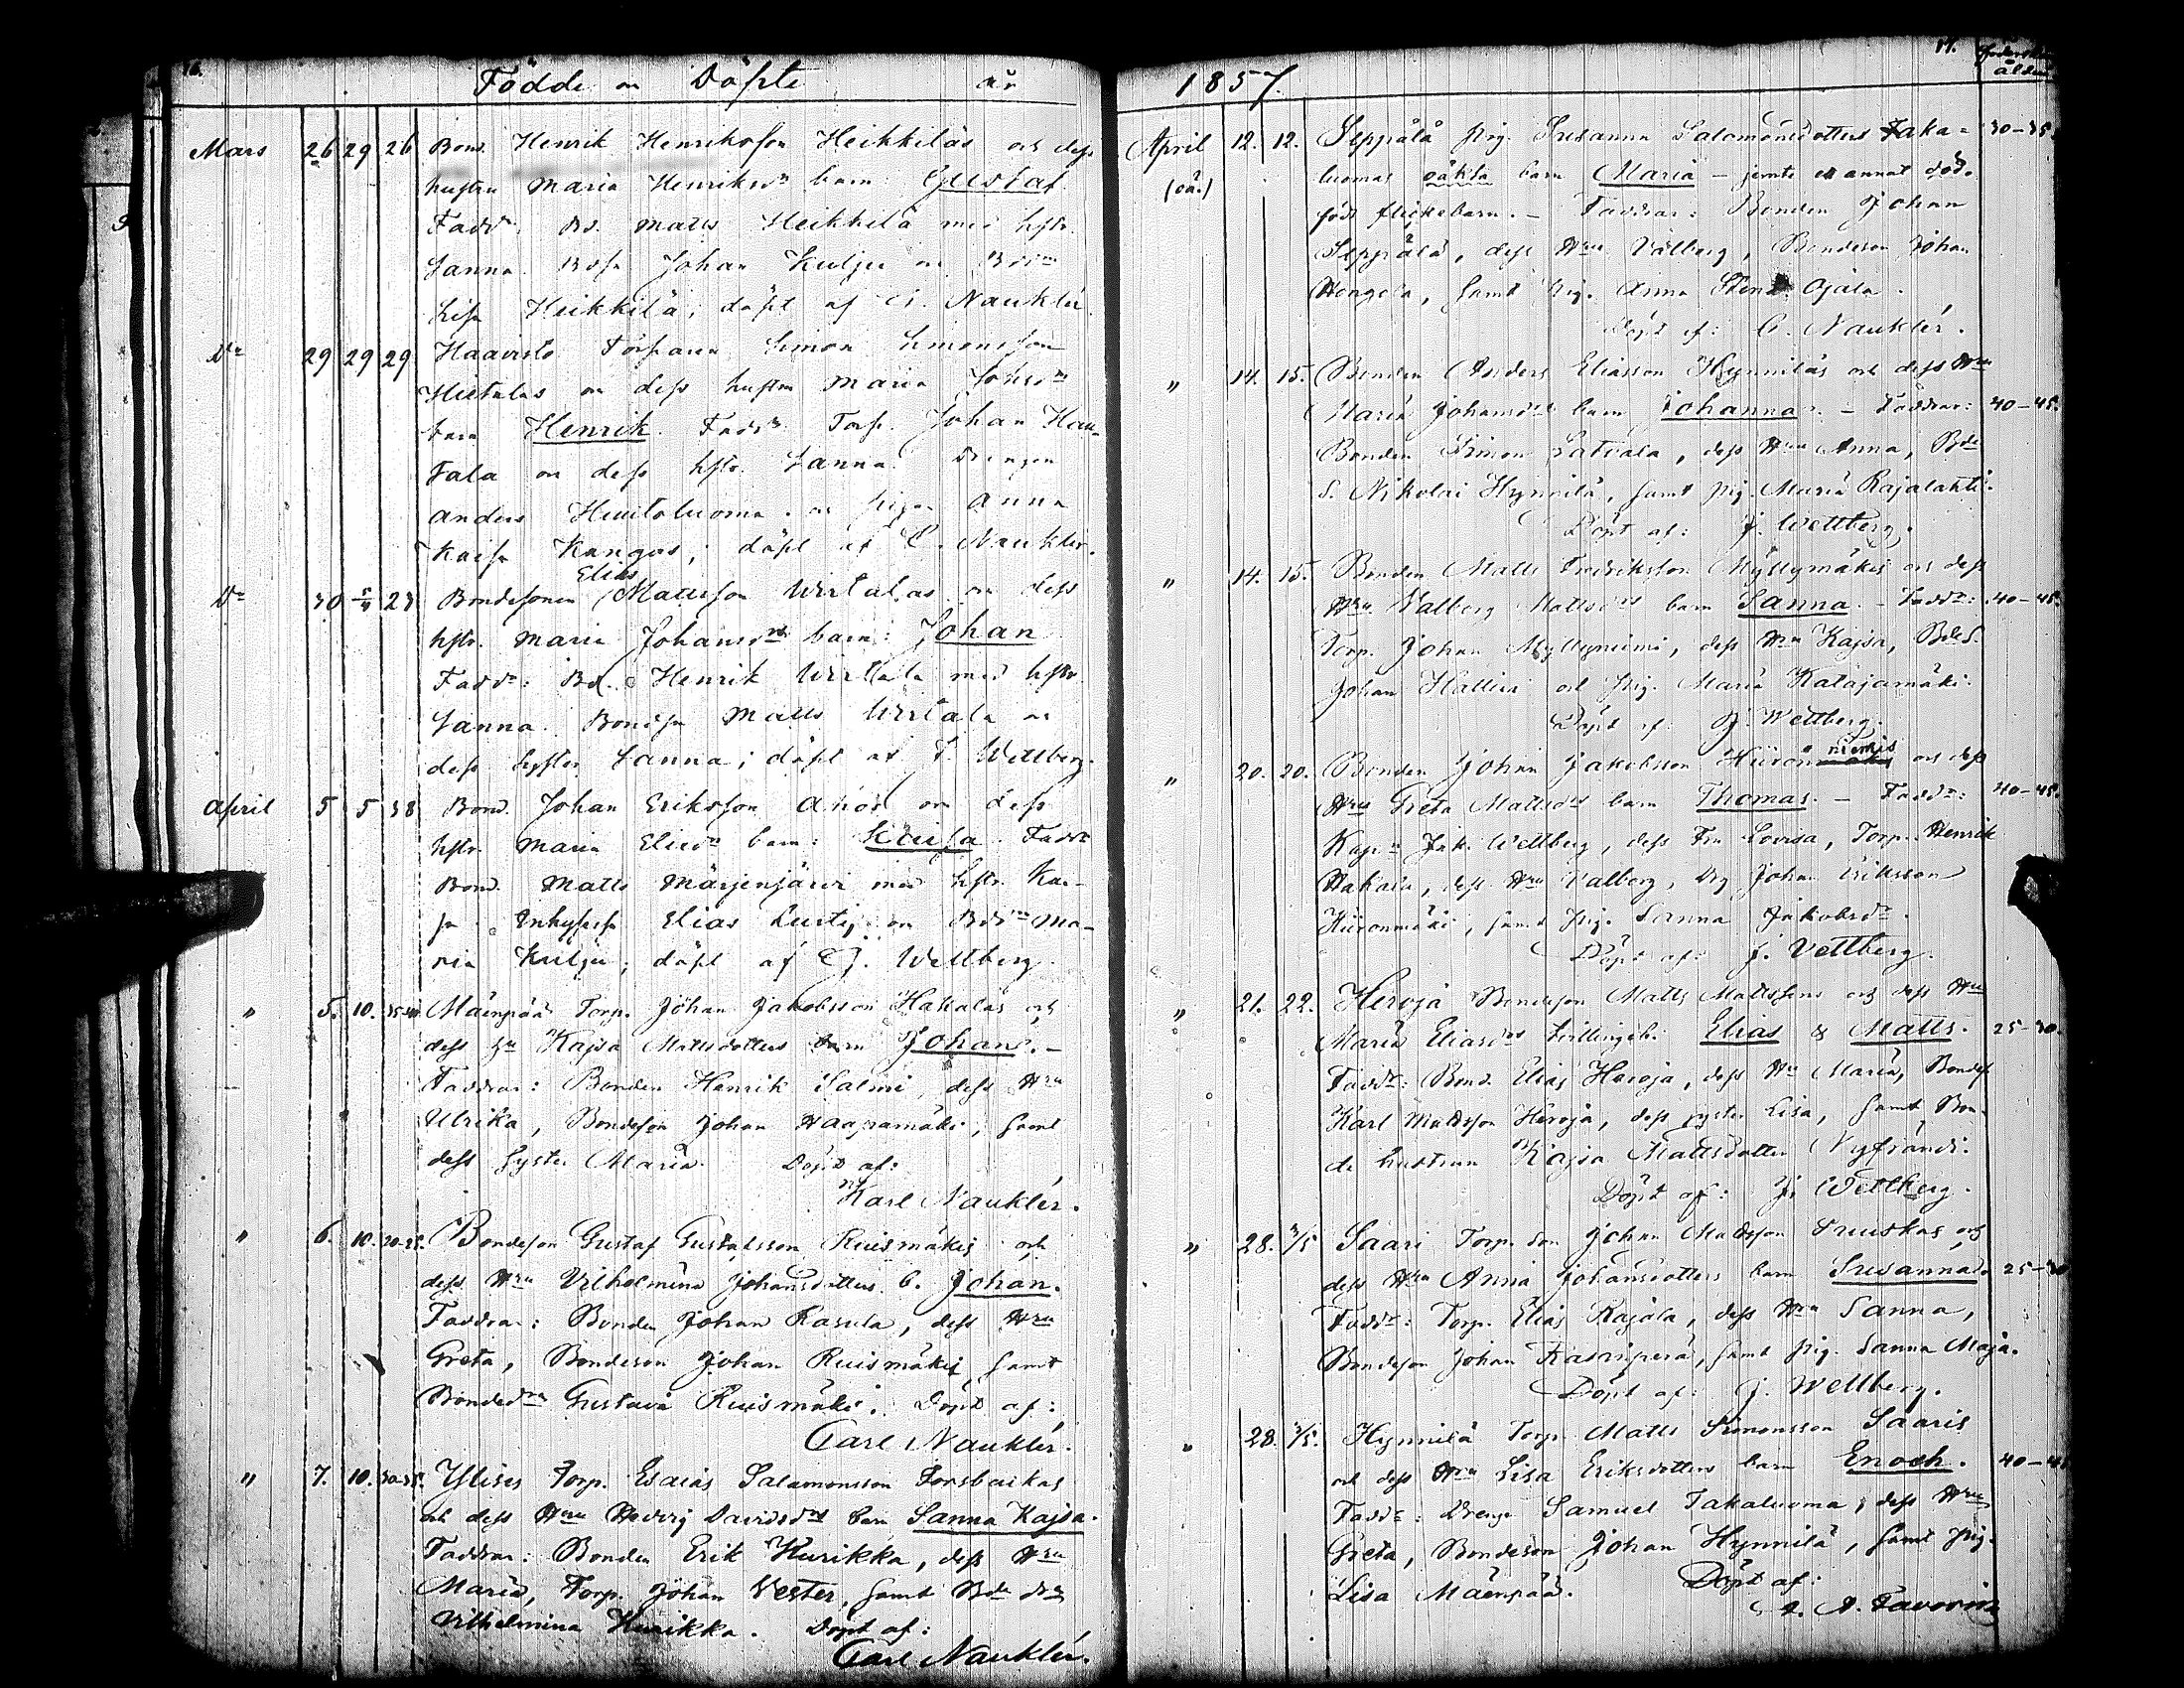 16.
Födde och Döpte år
Mars 26 29 26 Bond. Henrik Henriksson Heikkiläs och dess
hustru Maria Henriksdr barn: Gustaf
Faddr: Bd. Matts Heikkilä med hstr.
Sanna. Bdsn Johan Kulju och Bdsdr
Lisa Heikkilä; döpt af C. Nauklér
Do 29 29 29 Haavisto Torparen Simon Simonsson
Hietalas och dess hustru Maria Johsdr
barn Henrik. Faddr: Torp. Johan Hau-
tala och dess hstr. Sanna. Drengen
Anders Huutoluoma och pigan Anna
Kaisa Kangas; döpt af C. Nauklér.
Elias
Do 30 5/4 23 Bondesonen Mattsson Wirtalas och dess
hstr. Maria Johansdr barn: Johan
Faddr: Bd. Henrik Wirtala med hstr
Sanna. Bondsn Matts Wirtala och
dess syster Sanna; döpt af J. Wettberg.
April 5 5 38 Bond. Johan Eriksson Ahos och dess
hstr. Maria Eliedr barn: Kaisa. Faddr
Bond. Matts Märjenjärvi med hstr. Kai-
sa. Inhyses Elias Lustig och Bdsdr Ma-
ria Kulju; döpt af J. Wettberg
" 5. 10. 35-40 Mäenpää Torp. Johan Jakobsson Hakalas och
dess Hu Kajsa Mattsdotters barn Johan. –
Faddrar: Bonden Henrik Salmi, dess Hru
Ulrika, Bondeson Johan Haapamäki, samt
dess Syster Maria. Döpt af:
Karl Nauklér.
" 6. 10. 20-25. Bondeson Gustaf Gustafsson Ruismäkis och
dess Hru Vilhelmina Johansdotters b. Johan.
Faddrar: Bonden Johan Rasula, dess Hru
Greta, Bondeson Johan Ruismäki, samt
Bondedr Gustava Ruismäki. Döpt af:
Carl Nauklér.
" 7. 10. 30-35. Ylises Torp. Esaias Salamonsson Forsbackas
och dess Hru Hedvig Davidsdrs barn Sanna Kajsa.
Faddrar: Bonden Erik Kurikka, dess Hru
Maria, Torp. Johan Vester, samt Bde dr
Vilhelmina Kurikka. Döpt af:
Carl Nauklér.
1857.
17.
ålder
April 12. 12. Seppälä pig. Susanna Salomonsdotters Jaka= 30–35
(oä.) luomas oäkta barn Maria – jemte et annat död-
födt flickebarn. – Faddrar: Bonden Johan
Seppälä, dess Hru Valberg, Bondeson Johan
Hongela, samt pig. Anna Ojala.
Döpt af: C. Nauklér.
" 14. 15. Bonden Anders Eliasson Hynniläs och dess Hru
Maria Johansdrs barn Johanna. – Faddrar: 40–45.
Bonden Simon Latvala, dess Hru Anna, Bde
S. Nikolai Hynnilä, samt pig. Maria Rajalahti.
Döpt af: J. Wettberg.
" 14. 15. Bonden Matts Fredriksson Myllymäkis och dess
Hru Valberg Mattsdrs barn Sanna. – Faddr: 40–45.
Torp. Johan Myllyniemi, dess Hru Kajsa, BdeS.
Johan Hallila och pig. Maria Katajamäki.
Döpt af: J. Wettberg.
niemis
" 20. 20. Bonden Johan Jakobsson Hiironmäkis och dess
Hru Greta Mattsdrs barn Thomas. – Faddr: 40–45.
Kapn Jak. Wettberg, dess Fru Lovisa, Torp. Henrik
Hakala, dess Hru Valberg, Drg Johan Eriksson
Hiironmäki, samt pig. Sanna Jakobsdr.
Döpt af: J. Vettberg.
" 21. 22. Heroja Bondeson Matts Mattssons och dess Hru
Maria Eliasdrs tvillingeb. Elias & Matts. 25–30.
Faddr: Bond. Elias Heroja, dess Hru Maria, Bondes
Karl Mattsson Heroja, dess syster Lisa, samt Bon-
de hustrun Kajsa Mattsdotter Nyfrändi.
Döpt af: J. Wettberg.
" 28. 3/5 Saari Torp. Son Johan Mattsson och
dess Hru Anna Johansdotters barn Susanna. 25–30
Faddr: Torp. Elias Rajala, dess Hru Sanna,
Bondeson Johan Kasariperä, samt pig. Sanna Maja.
Döpt af: J. Wettberg.
" 28. 3/5. Hynnilä Torp. Matts Simonsson Saaris
och dess Hru Lisa Eriksdotters barn Enoch. 40–45
Faddr: Dreng Samuel Jakaluoma, dess Hru
Greta, Bondeson Johan Hynnilä, samt pig.
Lisa Mäenpää. Döpt af:
A. Favorin